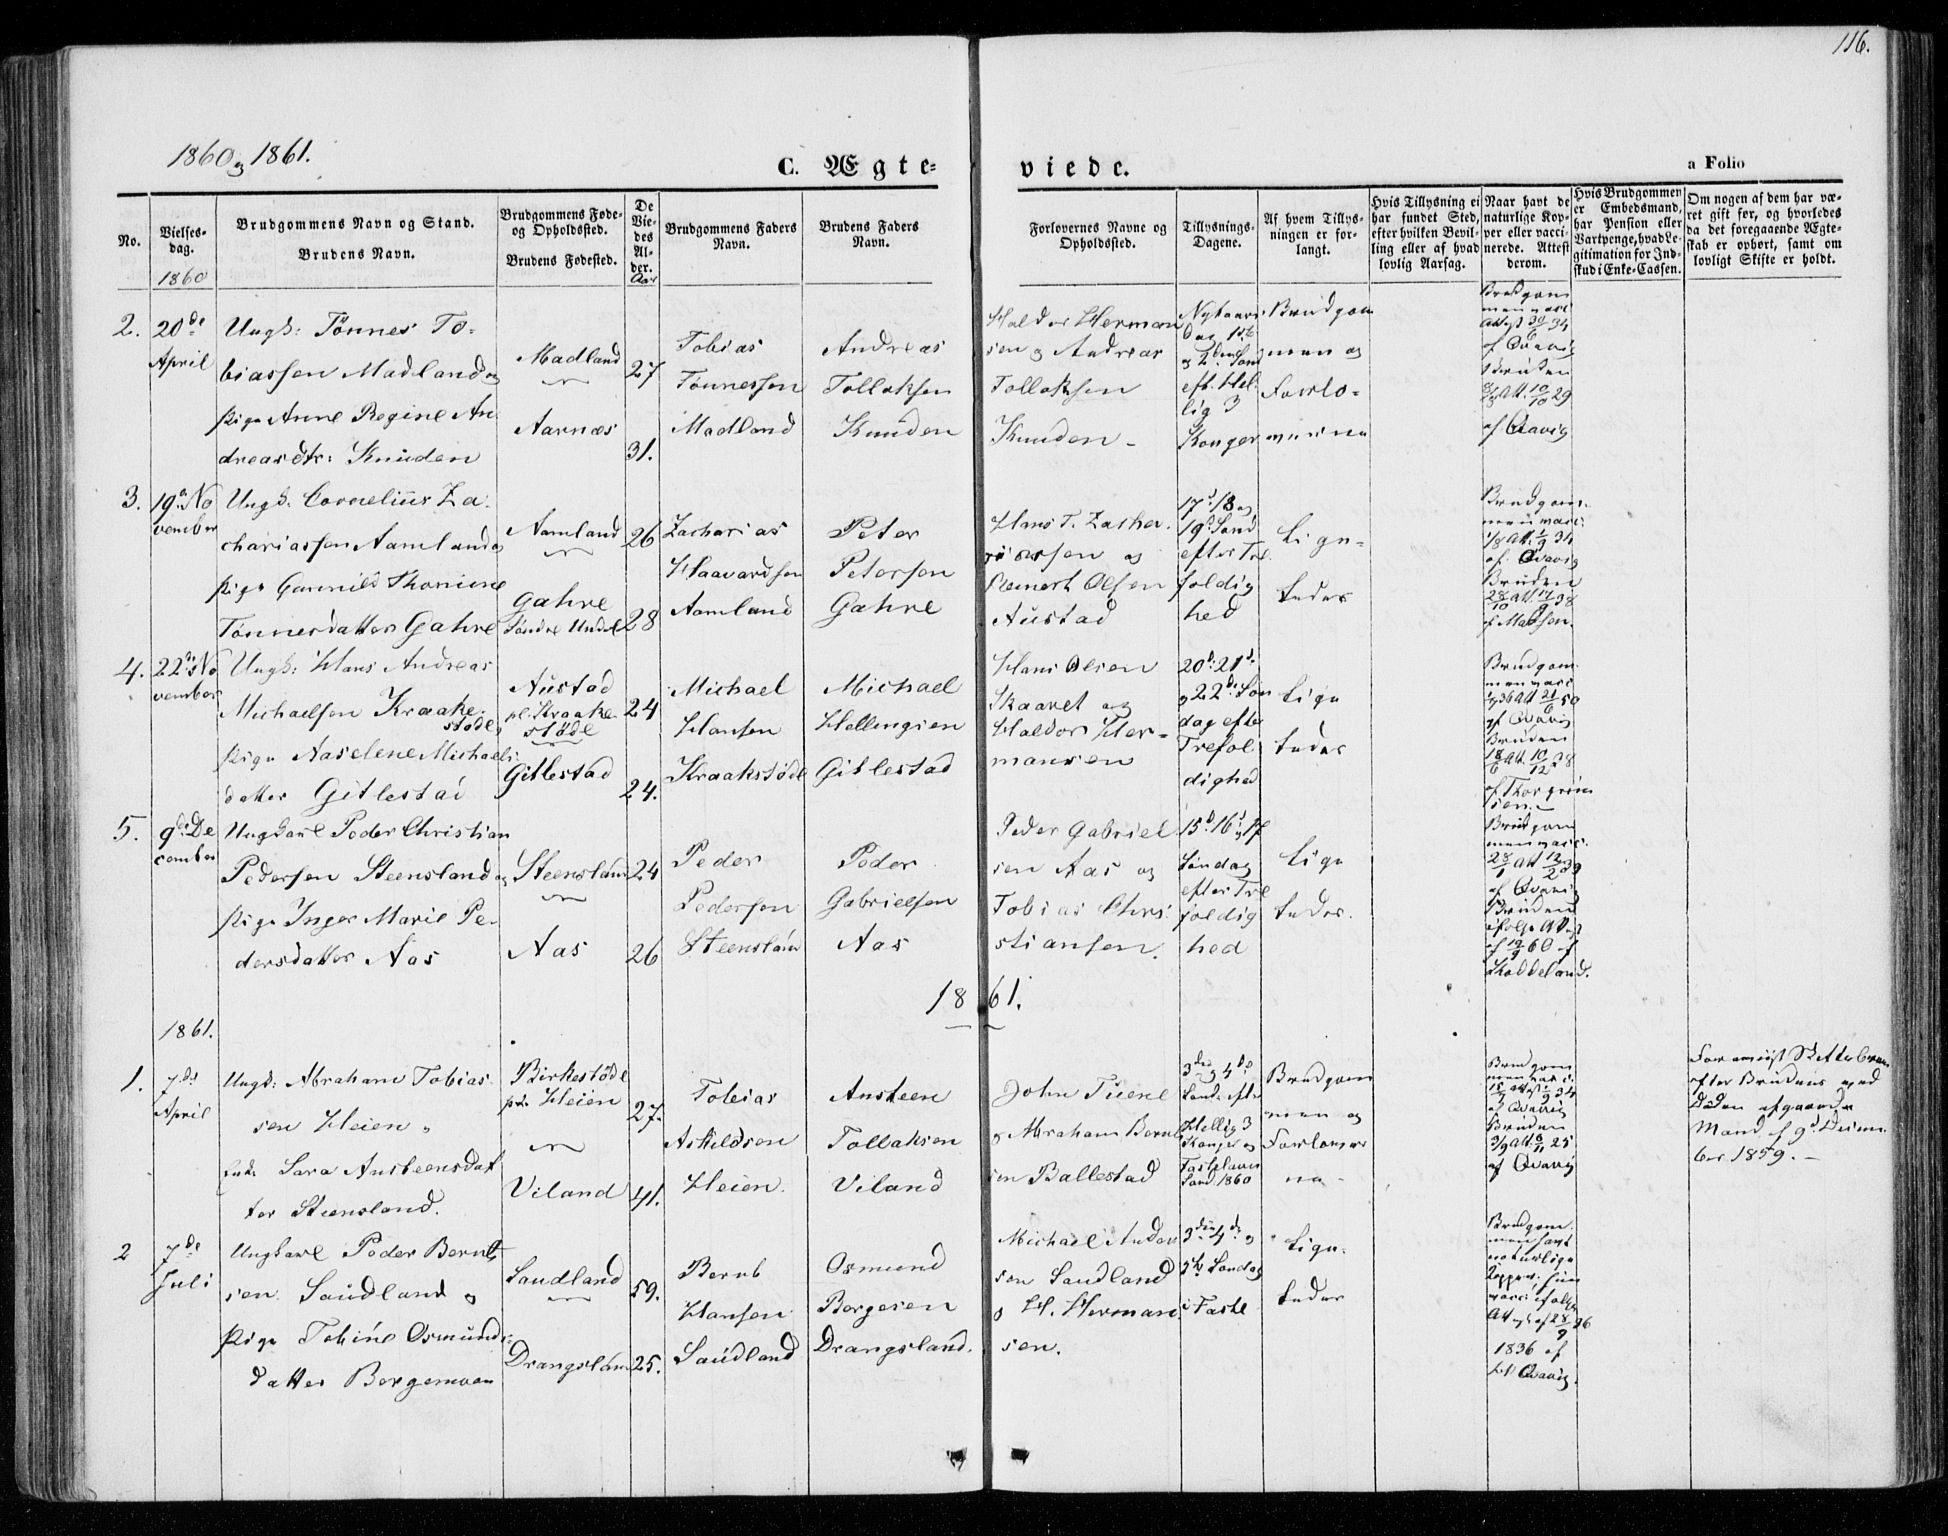 116.
1860 og 1861.
C. Ægte-
viede.
a Folio
No.
Vielses-
dag.
1860
Brudgommens Navn og Stand.
Brudens Navn.
Brudgommens Føde-
og Opholdssted.
Brudens Fødested.
De
Vie-
des
Al-
der.
Aar
Brudgommens Faders
Navn.
Brudens Faders
Navn.
Forlovernes Navne og
Opholdssted.
Tillysnings-
Dagene.
Af hvem Tillys-
ningen er for-
langt.
Hvis Tillysning ei
har fundet Sted,
efter hvilken Bevil-
ling eller af hvad
lovlig Aarsag.
Naar havt de
naturlige Kop-
per eller vacci-
nerede. Attest
derom.
Hvis Brudgommen
er Embedsmand,
har Pension eller
Vartpenge, hvad Le-
gitimation for Ind-
skud i Enke-Cassen.
Om nogen af dem har væ-
ret gift før, og hvorledes
da det foregaaende Ægte-
skab er ophørt, samt om
lovligt Skifte er holdt.
2.
20de
April
Ungk: Tönnes To-
biassen Madland og
Pige Anne Regine An
dreasdtr: Knuden
Madland
Aarnæs
27
31.
Tobias
Tönnessen
Madland
Andreas
Tollaksen
Knuden
Haldor Herman
sen og Andreas
Tollaksen
Knuden
Nytaars
Dag 1ste
og 2den Sønd
eft. Hel.
lig 3
Konger
Brudgom
men og
Forlo-
verne
Brudgom
men vacc
Attest 30/6 34
af Qvavig
Bruden
Att. 10/10 29
af Qvavig
3.
19de No
vember
Ungk. Cornelius Za
chariassen Aamland og
Pige Gunnild Thonine
Tönnesdatter Gahre
Aamland
Gahre
Søndre Undal
26
28
Zacharias
Haavardsen
Aamland
Peter
Petersen
Gahre
Hans T. Zacha
riassen og
Reinert Olsen
Austad
17d 18 og
19d Sønd
efter Tre
foldig
hed
Lige-
ledes
Brudgom-
men vacc:
Att. 1/9 34
af Qvavig
Bruden
28/10 Att. 38
af Madsen.
4.
22de No
vember
Ungk: Hans Andreas
Michaelsen Kraake
støde,
Pige Aaselene Michaels
datter Gitlestad
Austad
pl. Kraake
støde
Gitlestad
24
24.
Michael
Hansen
Kraakstøde
Michael
Hellingsen
Gitlestad
Hans Olsen
Skaaret og
Haldor Her-
mansen
20d: 21d:
og 22de Søn
dag efter
Trefol
dighed
Lige
ledes
Brudgom
men vacc
Att 21/6 50
af Qvavig
Bruden
18/6 Att 10/12 38
af Thorgrim
sen.
5.
9de De
cember
Ungkarl Peder Christian
Pedersen Steensland og
Pige Inger Marie Pe-
dersdatter Aas
Steensland
Aas
24
26
Peder
Pedersen
Steensland
Peder
Gabrielsen
Aas
Peder Gabriel
sen Aas og
Tobias Chri
stiansen.
15d. 16d og 17
Søndag
efter Tre
foldig
hed
Lige
ledes.
Brudgom
men vacc:
28/1 Att 12/2 39
af Qvavig
Bruden
ifølge Attest
af 19/9 60 af
Kobbeland.
1861.
1861.
1.
7de
April
Ungk: Abraham Tobias
sen Heien
Enke Sara Ansteensdat
ter Steensland.
Birkestøde
Heien
Viland
27.
41.
Tobias
Askildsen
Heien.
Ansteen
Tollaksen
Viland
John Tuene
og Abraham Bernt
sen Ballestad
3die og 4de
Sønd. efter
Hellig 3
Konger og
Fastelavns
Sønd. 1860
Brudgom
men og
Forlover
ne
Brudgom
men vacc.
34
af Qvavig
Bruden
3/9 Att. 6/11 25
af Qvavig
Foreviist Skiftebrev
efter Brudens ved
Døden afgaaede
Mand af 9d Decem
ber 1859.
2
7de
Juli
Ungkarl Peder Bernt
sen Saudland og
Pige Tobine Osmunds
datter Bergemoen
Saudland
Drangsland
59.
25.
Bernt
Hansen
Saudland
Osmund
Børgesen
Drangsland.
Michael Ander
sen Saudland
og H. Herman
sen.
3die 4de og
5te Søndag
i Faste
Lige-
ledes
Brudgom
men havt
naturlige
Kopper. Hun
vacc: ifølge
Attest af 28/9
1836 af
Qvavig.